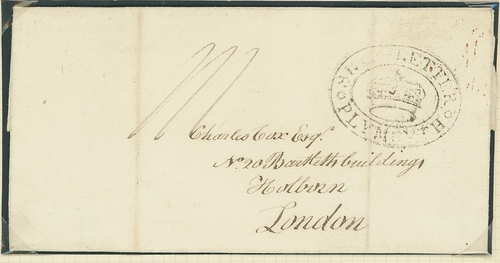 SHIP LETTER
PLYMOUTH
Charles Cox Esqr.
No. 20 Bartletts buildings
Holborn
London